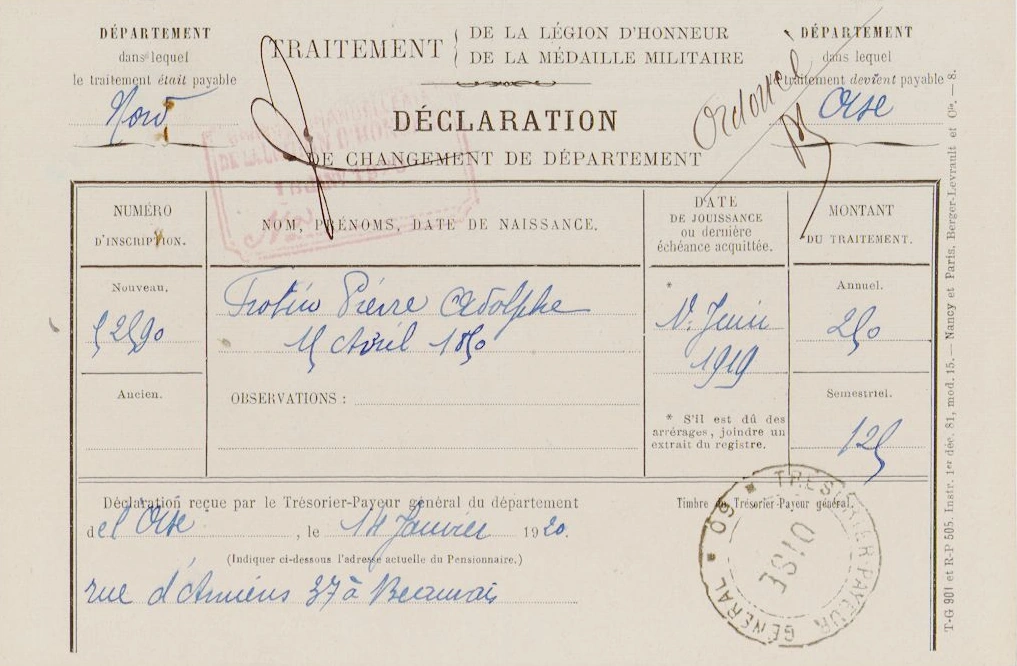 DÉPARTEMENT
dans lequel
le traitement était payable
Nord
TRAITEMENT { DE LA LÉGION D'HONNEUR
DE LA MÉDAILLE MILITAIRE
DÉCLARATION
DE CHANGEMENT DE DÉPARTEMENT
DÉPARTEMENT
dans lequel
le traitement devient payable
Oise
NUMÉRO
D'INSCRIPTION.
NOM, PRÉNOMS, DATE DE NAISSANCE.
DATE
DE JOUISSANCE
ou dernière
échéance acquittée.
MONTANT
DU TRAITEMENT.
Nouveau.
52590
Ancien.
Trotin Pierre Adolphe
15 Avril 1850
OBSERVATIONS :
*
1er Juin
1919
* S'il est dû des
arrérages, joindre un
extrait du registre.
Annuel.
250
Semestriel.
125
Déclaration reçue par le Trésorier-Payeur général du département
de l'Oise, le 14 Janvier 1920.
(Indiquer ci-dessous l'adresse actuelle du Pensionnaire.)
rue d'Amiens 37 à Beauvais
Timbre du Trésorier-Payeur général.
TRESORIER-PAYEUR GÉNÉRAL * 60 *
OISE
T-G 901 et R-P 505. Instr. 1er déc. 81, mod. 15. — Nancy et Paris, Berger-Levrault et Cie. — 8.